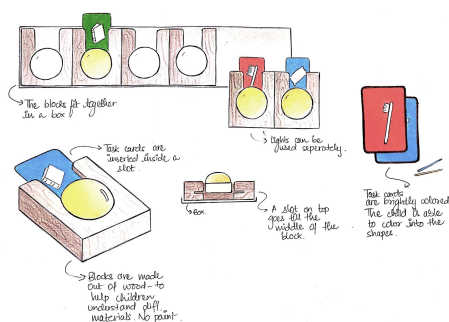 The blocks fit together
in a box
Lights can be
used seperately.
Task cards are
inserted inside a
slot.
Box.
A slot on top
goes till the
middle of the
block.
Task cards
are brightly colored
The child is able
to color into the
shapes.
Blocks are made
out of wood - to
help children
understand diff.
materials. No paint.